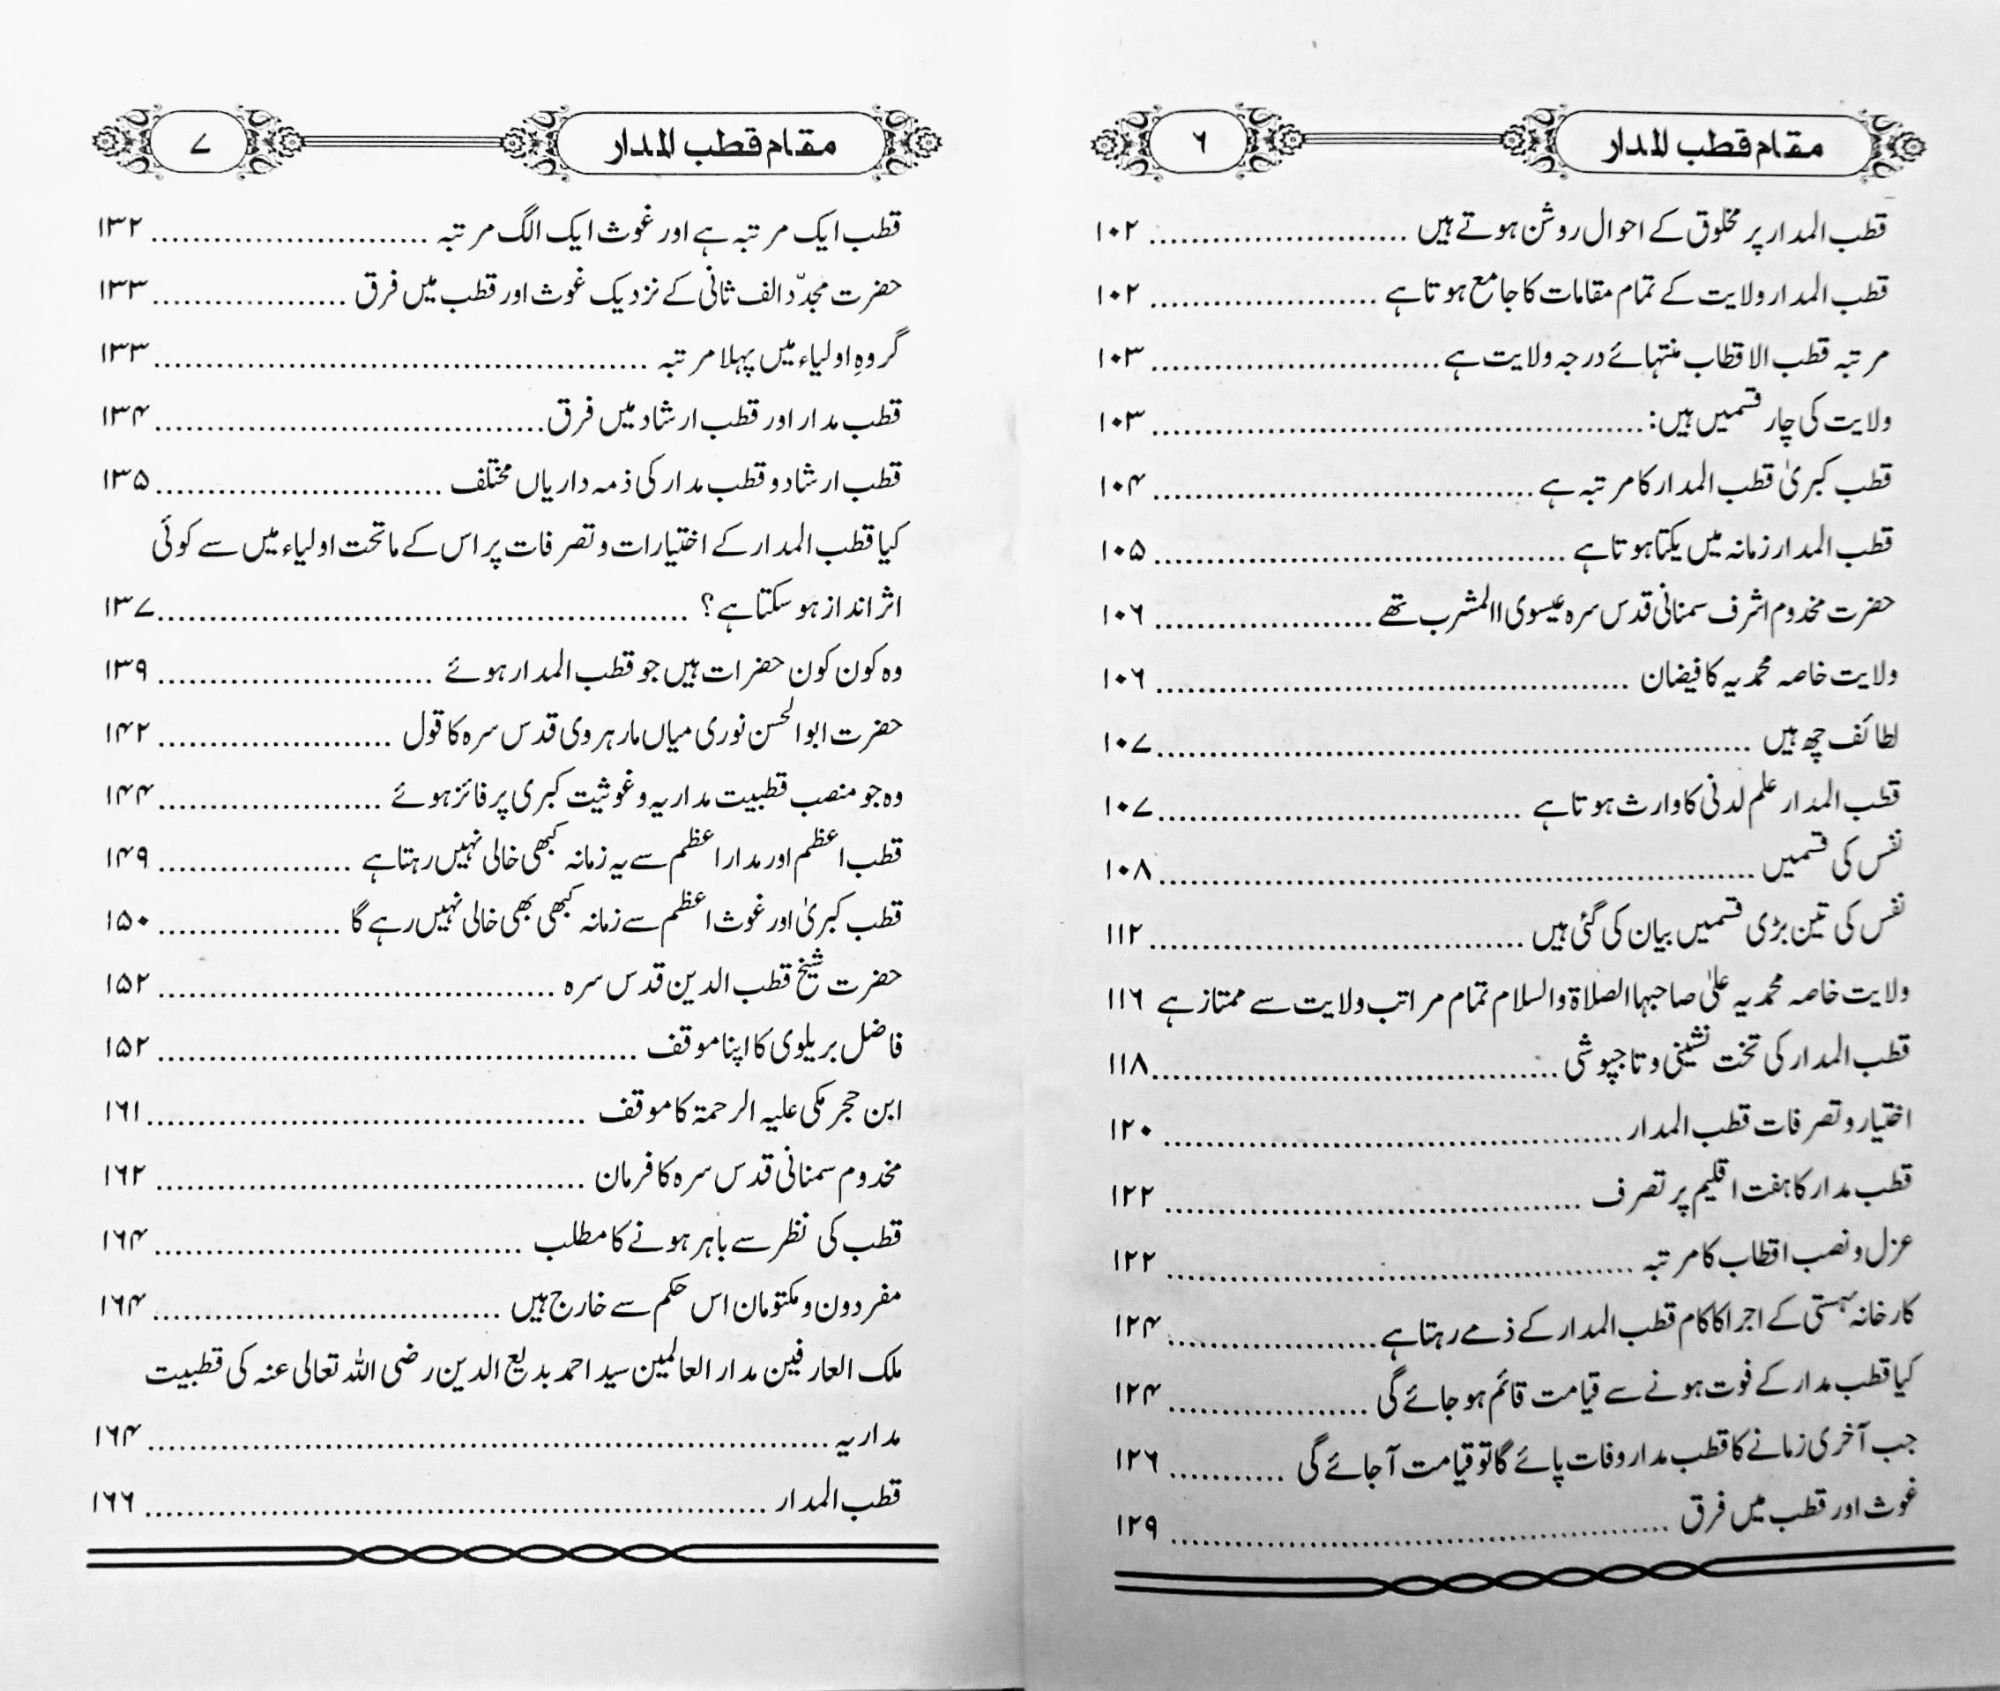 مقام قطب المدار
٦
قطب المدار پر مخلوق کے احوال روشن ہوتے ہیں ........................ ۱۰۲
قطب المدار ولایت کے تمام مقامات کا جامع ہوتا ہے ........................ ۱۰۲
مرتبہ قطب الاقطاب منتہائے درجہ ولایت ہے ........................ ۱۰۳
ولایت کی چار قسمیں ہیں: ........................ ۱۰۳
قطب کبریٰ قطب المدار کا مرتبہ ہے ........................ ۱۰۴
قطب المدار زمانہ میں یکتا ہوتا ہے ........................ ۱۰۵
حضرت مخدوم اشرف سمنانی قدس سرہ عیسوی االمشرب تھے ........................ ۱۰۶
ولایت خاصہ محمدیہ کا فیضان ........................ ۱۰۶
لطائف چھ ہیں ........................ ۱۰۷
قطب المدار علم لدنی کا وارث ہوتا ہے ........................ ۱۰۷
نفس کی قسمیں ........................ ۱۰۸
نفس کی تین بڑی قسمیں بیان کی گئی ہیں ........................ ۱۱۲
ولایت خاصہ محمدیہ علیٰ صاحبہا الصلاۃ والسلام تمام مراتب ولایت سے ممتاز ہے ۱۱۶
قطب المدار کی تخت نشینی و تاجپوشی ........................ ۱۱۸
اختیار و تصرفات قطب المدار ........................ ۱۲۰
قطب مدار کا ہفت اقلیم پر تصرف ........................ ۱۲۲
عزل و نصب اقطاب کا مرتبہ ........................ ۱۲۲
کارخانہ ہستی کے اجرا کا کام قطب المدار کے ذمے رہتا ہے ........................ ۱۲۴
کیا قطب مدار کے فوت ہونے سے قیامت قائم ہو جائے گی ........................ ۱۲۴
جب آخری زمانے کا قطب مدار وفات پائے گا تو قیامت آجائے گی ............ ۱۲۶
غوث اور قطب میں فرق ........................ ۱۲۹
مقام قطب المدار
۷
قطب ایک مرتبہ ہے اور غوث ایک الگ مرتبہ ........................ ۱۳۲
حضرت مجدّد الف ثانی کے نزدیک غوث اور قطب میں فرق ........................ ۱۳۳
گروہِ اولیاء میں پہلا مرتبہ ........................ ۱۳۳
قطب مدار اور قطب ارشاد میں فرق ........................ ۱۳۴
قطب ارشاد و قطب مدار کی ذمہ داریاں مختلف ........................ ۱۳۵
کیا قطب المدار کے اختیارات و تصرفات پر اس کے ماتحت اولیاء میں سے کوئی
اثر انداز ہو سکتا ہے؟ ........................ ۱۳۷
وہ کون کون حضرات ہیں جو قطب المدار ہوئے ........................ ۱۳۹
حضرت ابو الحسن نوری میاں مارہروی قدس سرہ کا قول ........................ ۱۴۲
وہ جو منصب قطبیت مداریہ و غوثیت کبری پر فائز ہوئے ........................ ۱۴۴
قطب اعظم اور مدار اعظم سے یہ زمانہ کبھی خالی نہیں رہتا ہے ................... ۱۴۹
قطب کبریٰ اور غوث اعظم سے زمانہ کبھی بھی خالی نہیں رہے گا .................. ۱۵۰
حضرت شیخ قطب الدین قدس سرہ ........................ ۱۵۲
فاضل بریلوی کا اپنا موقف ........................ ۱۵۲
ابن حجر مکی علیہ الرحمۃ کا موقف ........................ ۱۶۱
مخدوم سمنانی قدس سرہ کا فرمان ........................ ۱۶۲
قطب کی نظر سے باہر ہونے کا مطلب ........................ ۱۶۴
مفردون و مکتومان اس حکم سے خارج ہیں ........................ ۱۶۴
ملک العارفین مدار العالمین سید احمد بدیع الدین رضی اللہ تعالی عنہ کی قطبیت
مداریہ ........................ ۱۶۴
قطب المدار ........................ ۱۶۶